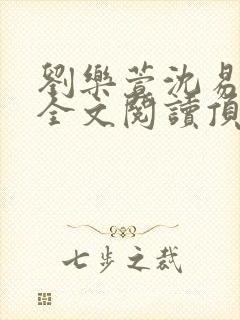 劉樂萱沈易
全文閱讀頂
七步之裁